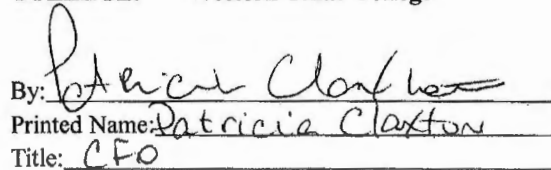 By: Patricia Claxton
Printed Name: Patricia Claxton
Title: CFO